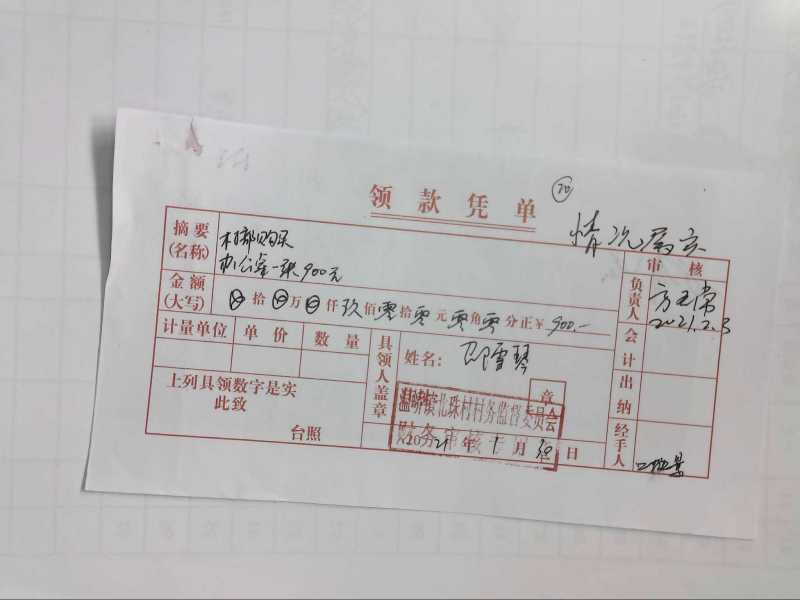 领款凭单
70
情况属实
摘要
(名称)
村部购买
办公桌一张900元
审核
金额
(大写)
拾 万 仟 玖 佰 零 拾 零 元 零 角 零 分正¥ 900.—
负责人
2021.2.3
计量单位 单价 数量
具领人盖章
姓名: 邵雪琴
会计
出纳
上列具领数字是实
此致
台照
章
北珠村村务监督委员会
财务审核
2021年1月30日
经手人